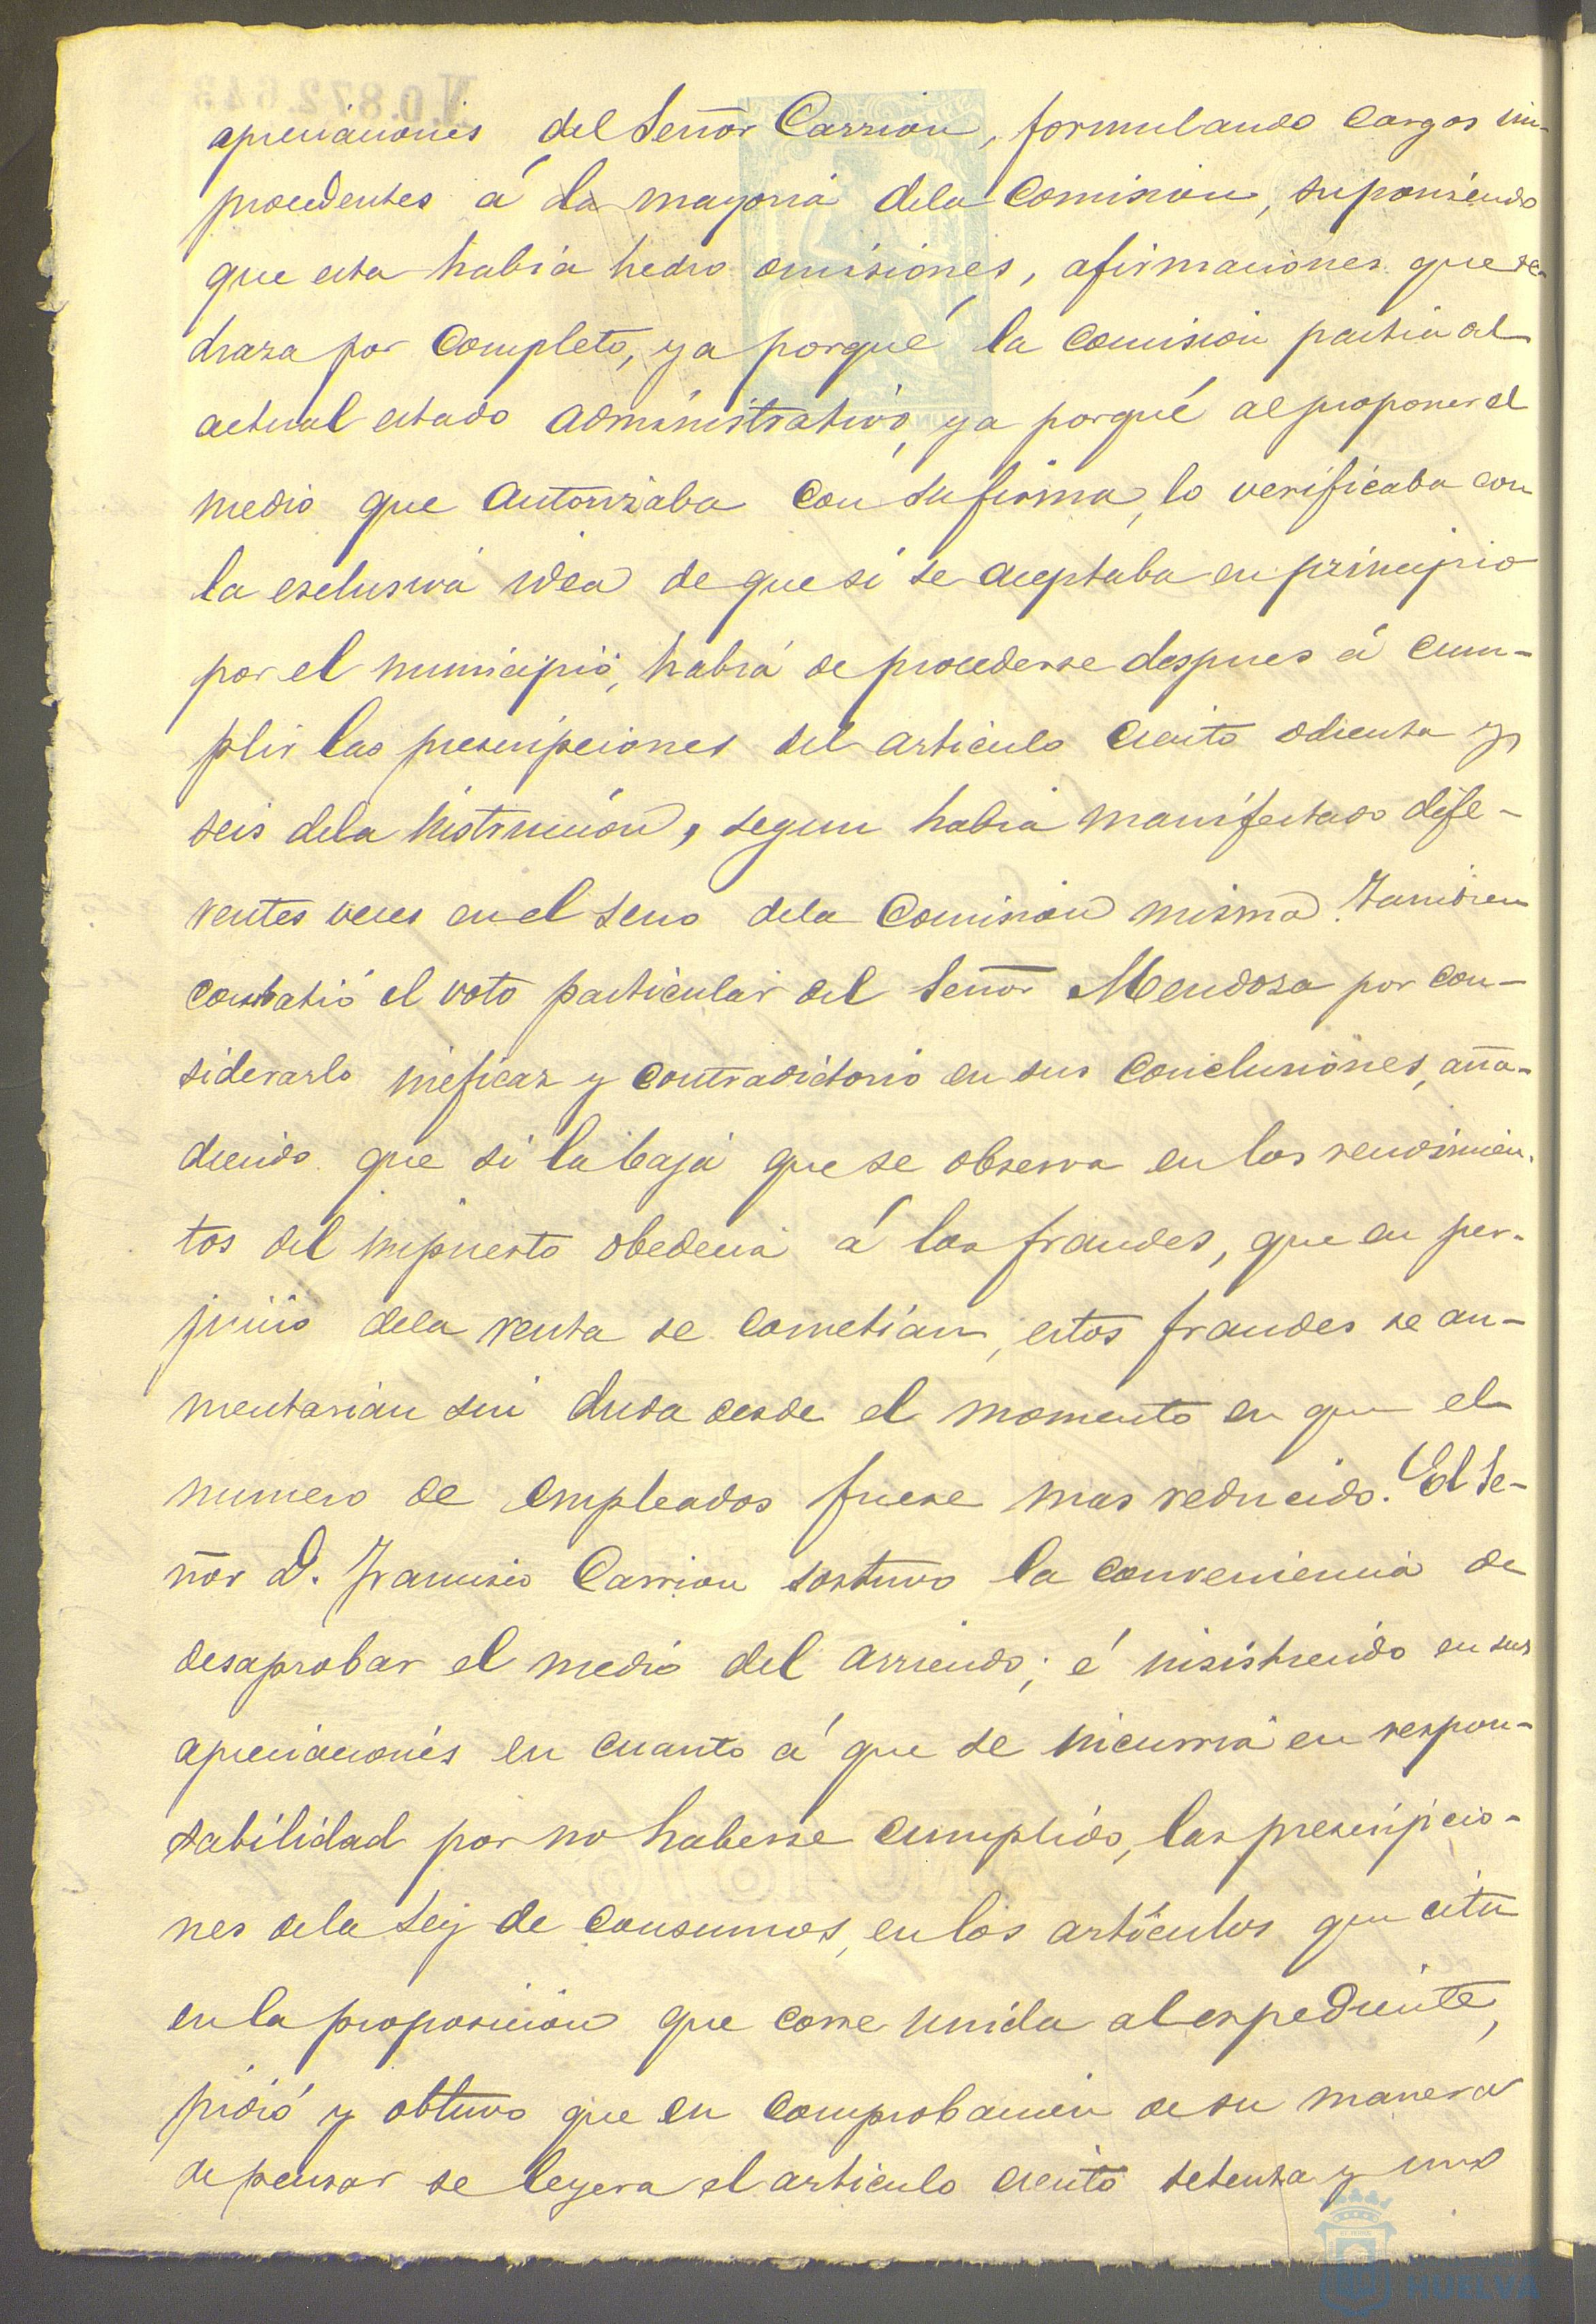 apreciaciones del Señor Carrion, formulando cargos im-
procedentes á la mayoria dela Comision, suponiendo
que esta habia hecho omisiones, afirmaciones que re-
chaza por completo, ya porqué la Comision partia del
actual estado administrativo, ya porqué al proponer el
medio que autorizaba con su firma, lo verificaba con
la esclusiva idea de que si se aceptaba en principio
por el municipio, habrá de procederse despues á cum-
plir las prescripciones del articulo ciento ochenta y
seis dela Instruccion, segun habia manifestado dife-
rentes veces en el seno dela Comision misma. Tambien
combatió el voto particular del Señor Mendoza por con-
siderarlo ineficaz y contradictorio en sus conclusiones, aña-
diendo que si la baja que se observa en los rendimien-
tos del impuesto obedecia á los fraudes, que en per-
juicio dela renta se cometian, estos fraudes se au-
mentarian sin duda desde el momento en que el
numero de empleados fuese mas reducido. El Se-
ñor D. Francisco Carrion sostuvo la conveniencia de
desaprobar el medio del arriendo; é insistiendo en sus
apreciaciones en cuanto á que se incurria en respon-
sabilidad por no haberse cumplido, las prescripcio-
nes dela Ley de Consumos, en los artículos que cita
en la proposicion que corre unida al espediente,
pidió y obtuvo que en comprobacion de su manera
de pensar se leyera el articulo ciento setenta y uno
N.0.872.643
HUELVA